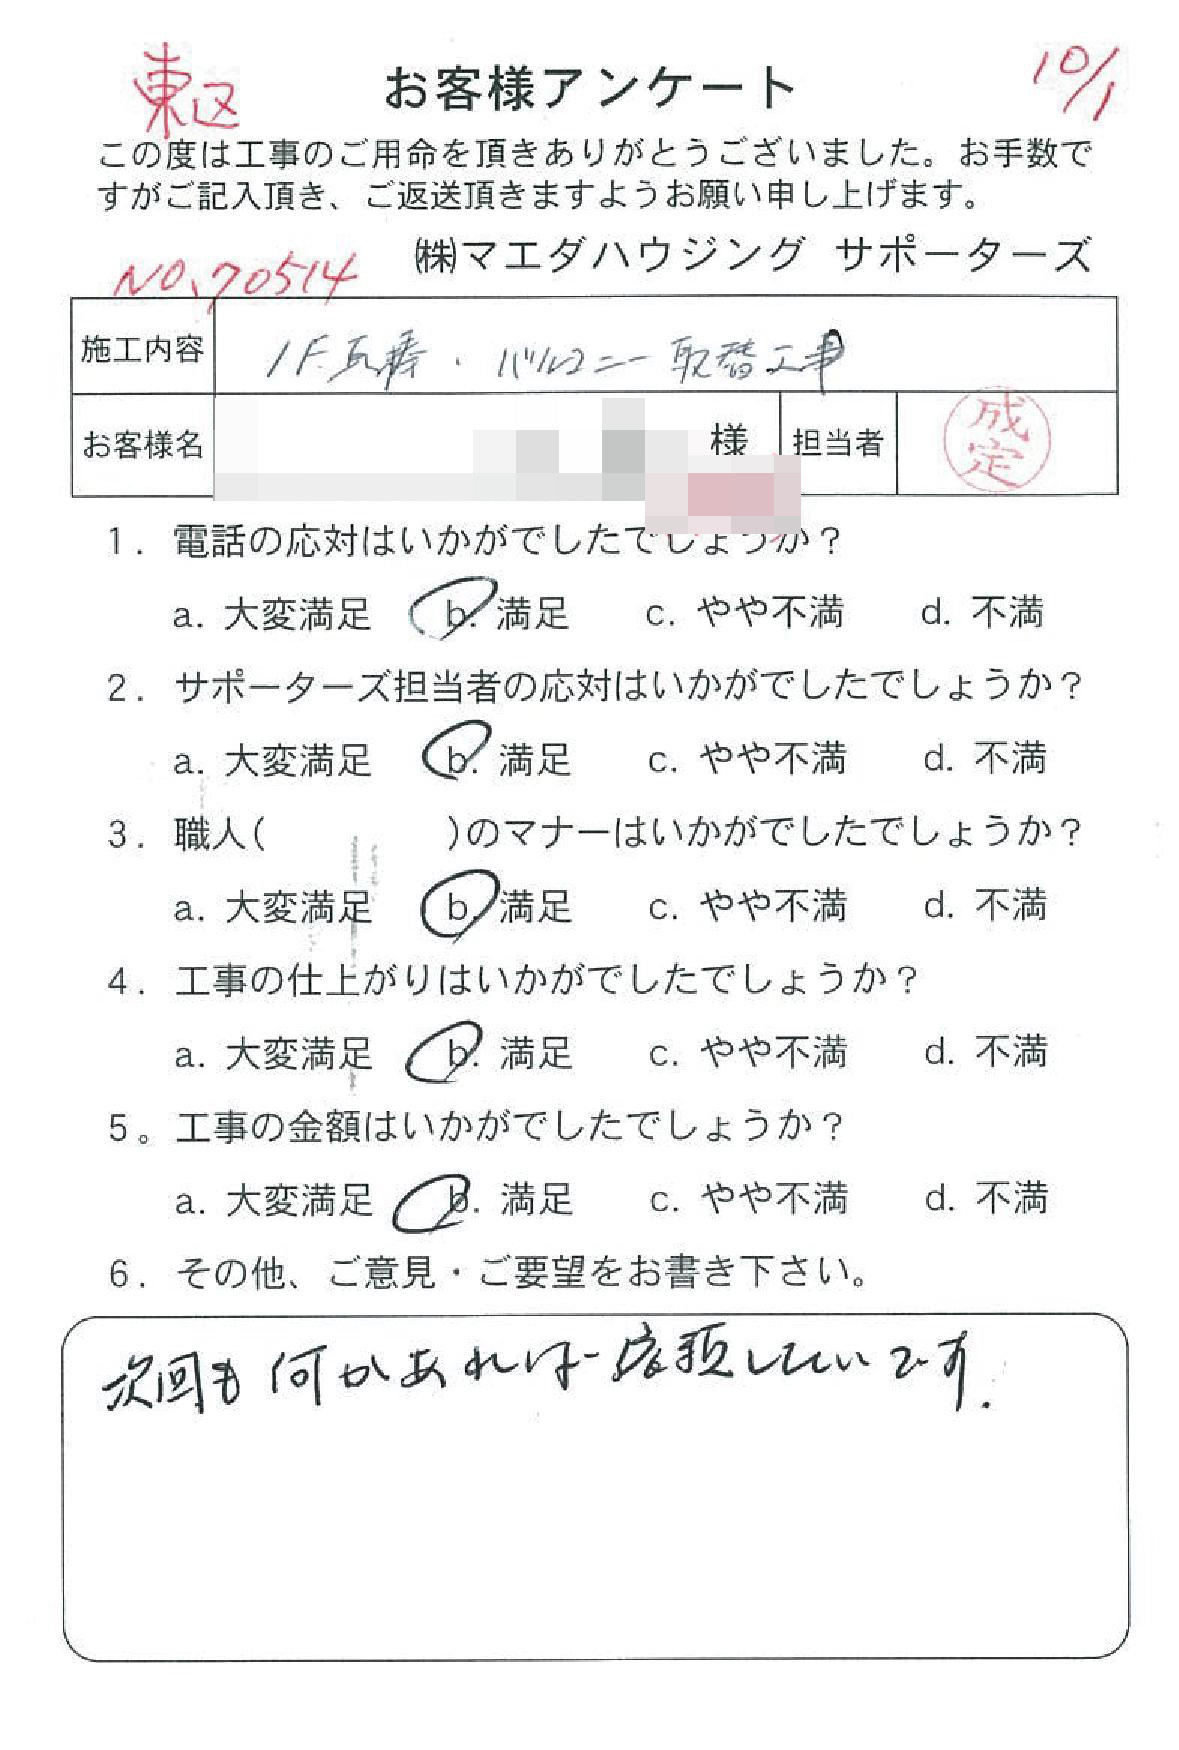 東区
お客様アンケート
10/1
この度は工事のご用命を頂きありがとうございました。お手数で
すがご記入頂き、ご返送頂きますようお願い申し上げます。
㈱マエダハウジング サポーターズ
NO.70514
施工内容 1F.瓦葺・バルコニー取替工事
お客様名 様 担当者 成定
1. 電話の応対はいかがでしたでしょうか？
a. 大変満足 b. 満足 c. やや不満 d. 不満
2. サポーターズ担当者の応対はいかがでしたでしょうか？
a. 大変満足 b. 満足 c. やや不満 d. 不満
3. 職人( )のマナーはいかがでしたでしょうか？
a. 大変満足 b. 満足 c. やや不満 d. 不満
4. 工事の仕上がりはいかがでしたでしょうか？
a. 大変満足 b. 満足 c. やや不満 d. 不満
5。工事の金額はいかがでしたでしょうか？
a. 大変満足 b. 満足 c. やや不満 d. 不満
6. その他、ご意見・ご要望をお書き下さい。
次回も何かあれば依頼したいです.